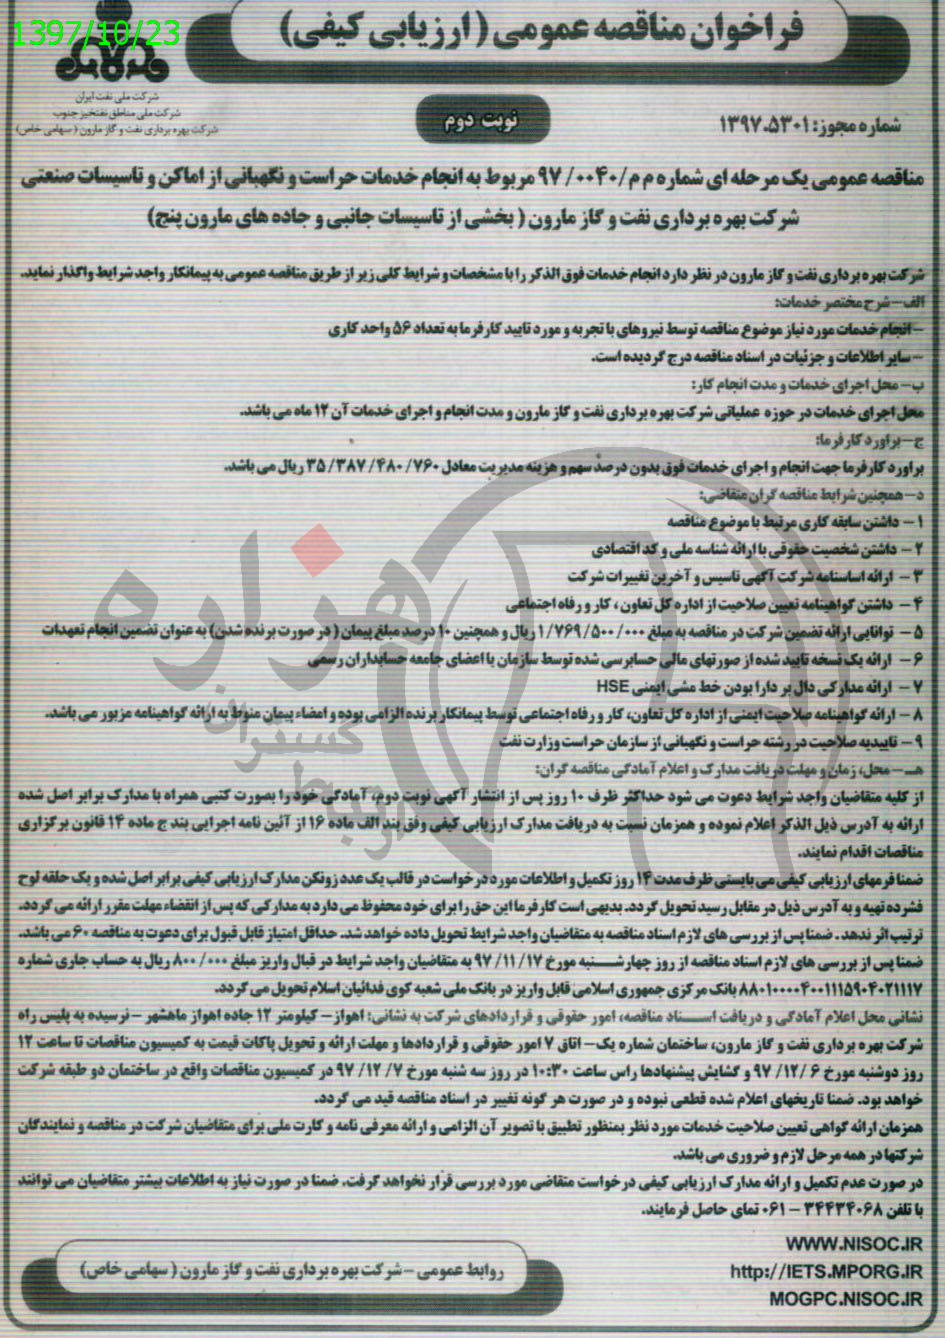 فراخوان مناقصه عمومی (ارزیابی کیفی)
1397/10/23
شرکت ملی نفت ایران
شرکت ملی مناطق نفتخیز جنوب
شرکت بهره برداری نفت و گاز مارون (سهامی خاص)
نوبت دوم
شماره مجوز: ۱۳۹۷.۵۳۰۱
مناقصه عمومی یک مرحله ای شماره م م/۹۷/۰۰۴۰ مربوط به انجام خدمات حراست و نگهبانی از اماکن و تاسیسات صنعتی
شرکت بهره برداری نفت و گاز مارون (بخشی از تاسیسات جانبی و جاده های مارون پنج)
شرکت بهره برداری نفت و گاز مارون در نظر دارد انجام خدمات فوق الذکر را با مشخصات و شرایط کلی زیر از طریق مناقصه عمومی به پیمانکار واجد شرایط واگذار نماید.
الف-شرح مختصر خدمات:
-انجام خدمات مورد نیاز موضوع مناقصه توسط نیروهای با تجربه و مورد تایید کارفرما به تعداد ۵۶ واحد کاری
-سایر اطلاعات و جزئیات در اسناد مناقصه درج گردیده است.
ب- محل اجرای خدمات و مدت انجام کار:
محل اجرای خدمات در حوزه عملیاتی شرکت بهره برداری نفت و گاز مارون و مدت انجام و اجرای خدمات آن ۱۲ ماه می باشد.
ج-براورد کارفرما:
براورد کارفرما جهت انجام و اجرای خدمات فوق بدون درصد سهم و هزینه مدیریت معادل ۳۵/۳۸۷/۴۸۰/۷۶۰ ریال می باشد.
د-همچنین شرایط مناقصه گران متقاضی:
۱- داشتن سابقه کاری مرتبط با موضوع مناقصه
۲- داشتن شخصیت حقوقی با ارائه شناسه ملی و کد اقتصادی
۳- ارائه اساسنامه شرکت آگهی تاسیس و آخرین تغییرات شرکت
۴- داشتن گواهینامه تعیین صلاحیت از اداره کل تعاون، کار و رفاه اجتماعی
۵- توانایی ارائه تضمین شرکت در مناقصه به مبلغ ۱/۷۶۹/۵۰۰/۰۰۰ ریال و همچنین ۱۰ درصد مبلغ پیمان (در صورت برنده شدن) به عنوان تضمین انجام تعهدات
۶- ارائه یک نسخه تایید شده از صورتهای مالی حسابرسی شده توسط سازمان یا اعضای جامعه حسابداران رسمی
۷- ارائه مدارکی دال بر دارا بودن خط مشی ایمنی HSE
۸- ارائه گواهینامه صلاحیت ایمنی از اداره کل تعاون، کار و رفاه اجتماعی توسط پیمانکار برنده الزامی بوده و امضاء پیمان منوط به ارائه گواهینامه مزبور می باشد.
۹- تاییدیه صلاحیت در رشته حراست و نگهبانی از سازمان حراست وزارت نفت
هـ-محل، زمان و مهلت دریافت مدارک و اعلام آمادگی مناقصه گران:
از کلیه متقاضیان واجد شرایط دعوت می شود حداکثر ظرف ۱۰ روز پس از انتشار آگهی نوبت دوم، آمادگی خود را بصورت کتبی همراه با مدارک برابر اصل شده
ارائه به آدرس ذیل الذکر اعلام نموده و همزمان نسبت به دریافت مدارک ارزیابی کیفی وفق بند الف ماده ۱۶ از آئین نامه اجرایی بند ج ماده ۱۴ قانون برگزاری
مناقصات اقدام نمایند.
ضمنا فرمهای ارزیابی کیفی می بایستی ظرف مدت ۱۴ روز تکمیل و اطلاعات مورد درخواست در قالب یک عدد زونکن مدارک ارزیابی کیفی برابر اصل شده و یک حلقه لوح
فشرده تهیه و به آدرس ذیل در مقابل رسید تحویل گردد. بدیهی است کارفرما این حق را برای خود محفوظ می دارد به مدارکی که پس از انقضاء مهلت مقرر ارائه می گردد،
ترتیب اثر ندهد. ضمنا پس از بررسی های لازم اسناد مناقصه به متقاضیان واجد شرایط تحویل داده خواهد شد. حداقل امتیاز قابل قبول برای دعوت به مناقصه ۶۰ می باشد.
ضمنا پس از بررسی های لازم اسناد مناقصه از روز چهارشنبه مورخ ۹۷/۱۱/۱۷ به متقاضیان واجد شرایط در قبال واریز مبلغ ۸۰۰/۰۰۰ ریال به حساب جاری شماره
۸۸۰۱۰۰۰۰۴۰۰۱۱۱۵۹۰۴۰۲۱۱۱۷ بانک مرکزی جمهوری اسلامی قابل واریز در بانک ملی شعبه کوی فدائیان اسلام تحویل می گردد.
نشانی محل اعلام آمادگی و دریافت اسناد مناقصه، امور حقوقی و قراردادهای شرکت به نشانی: اهواز- کیلومتر ۱۲ جاده اهواز ماهشهر -نرسیده به پلیس راه
شرکت بهره برداری نفت و گاز مارون، ساختمان شماره یک- اتاق ۷ امور حقوقی و قراردادها و مهلت ارائه و تحویل پاکات قیمت به کمیسیون مناقصات تا ساعت ۱۲
روز دوشنبه مورخ ۹۷/۱۲/۶ و گشایش پیشنهادها راس ساعت ۱۰:۳۰ در روز سه شنبه مورخ ۹۷/۱۲/۷ در کمیسیون مناقصات واقع در ساختمان دو طبقه شرکت
خواهد بود. ضمنا تاریخهای اعلام شده قطعی نبوده و در صورت هر گونه تغییر در اسناد مناقصه قید می گردد.
همزمان ارائه گواهی تعیین صلاحیت خدمات مورد نظر بمنظور تطبیق با تصویر آن الزامی و ارائه معرفی نامه و کارت ملی برای متقاضیان شرکت در مناقصه و نمایندگان
شرکتها در همه مرحل لازم و ضروری می باشد.
در صورت عدم تکمیل و ارائه مدارک ارزیابی کیفی درخواست متقاضی مورد بررسی قرار نخواهد گرفت. ضمنا در صورت نیاز به اطلاعات بیشتر متقاضیان می توانند
با تلفن ۳۴۴۳۴۰۶۸ - ۰۶۱ تمای حاصل فرمایند.
WWW.NISOC.IR
http://IETS.MPORG.IR
MOGPC.NISOC.IR
روابط عمومی -شرکت بهره برداری نفت و گاز مارون (سهامی خاص)
هزاره
گستران